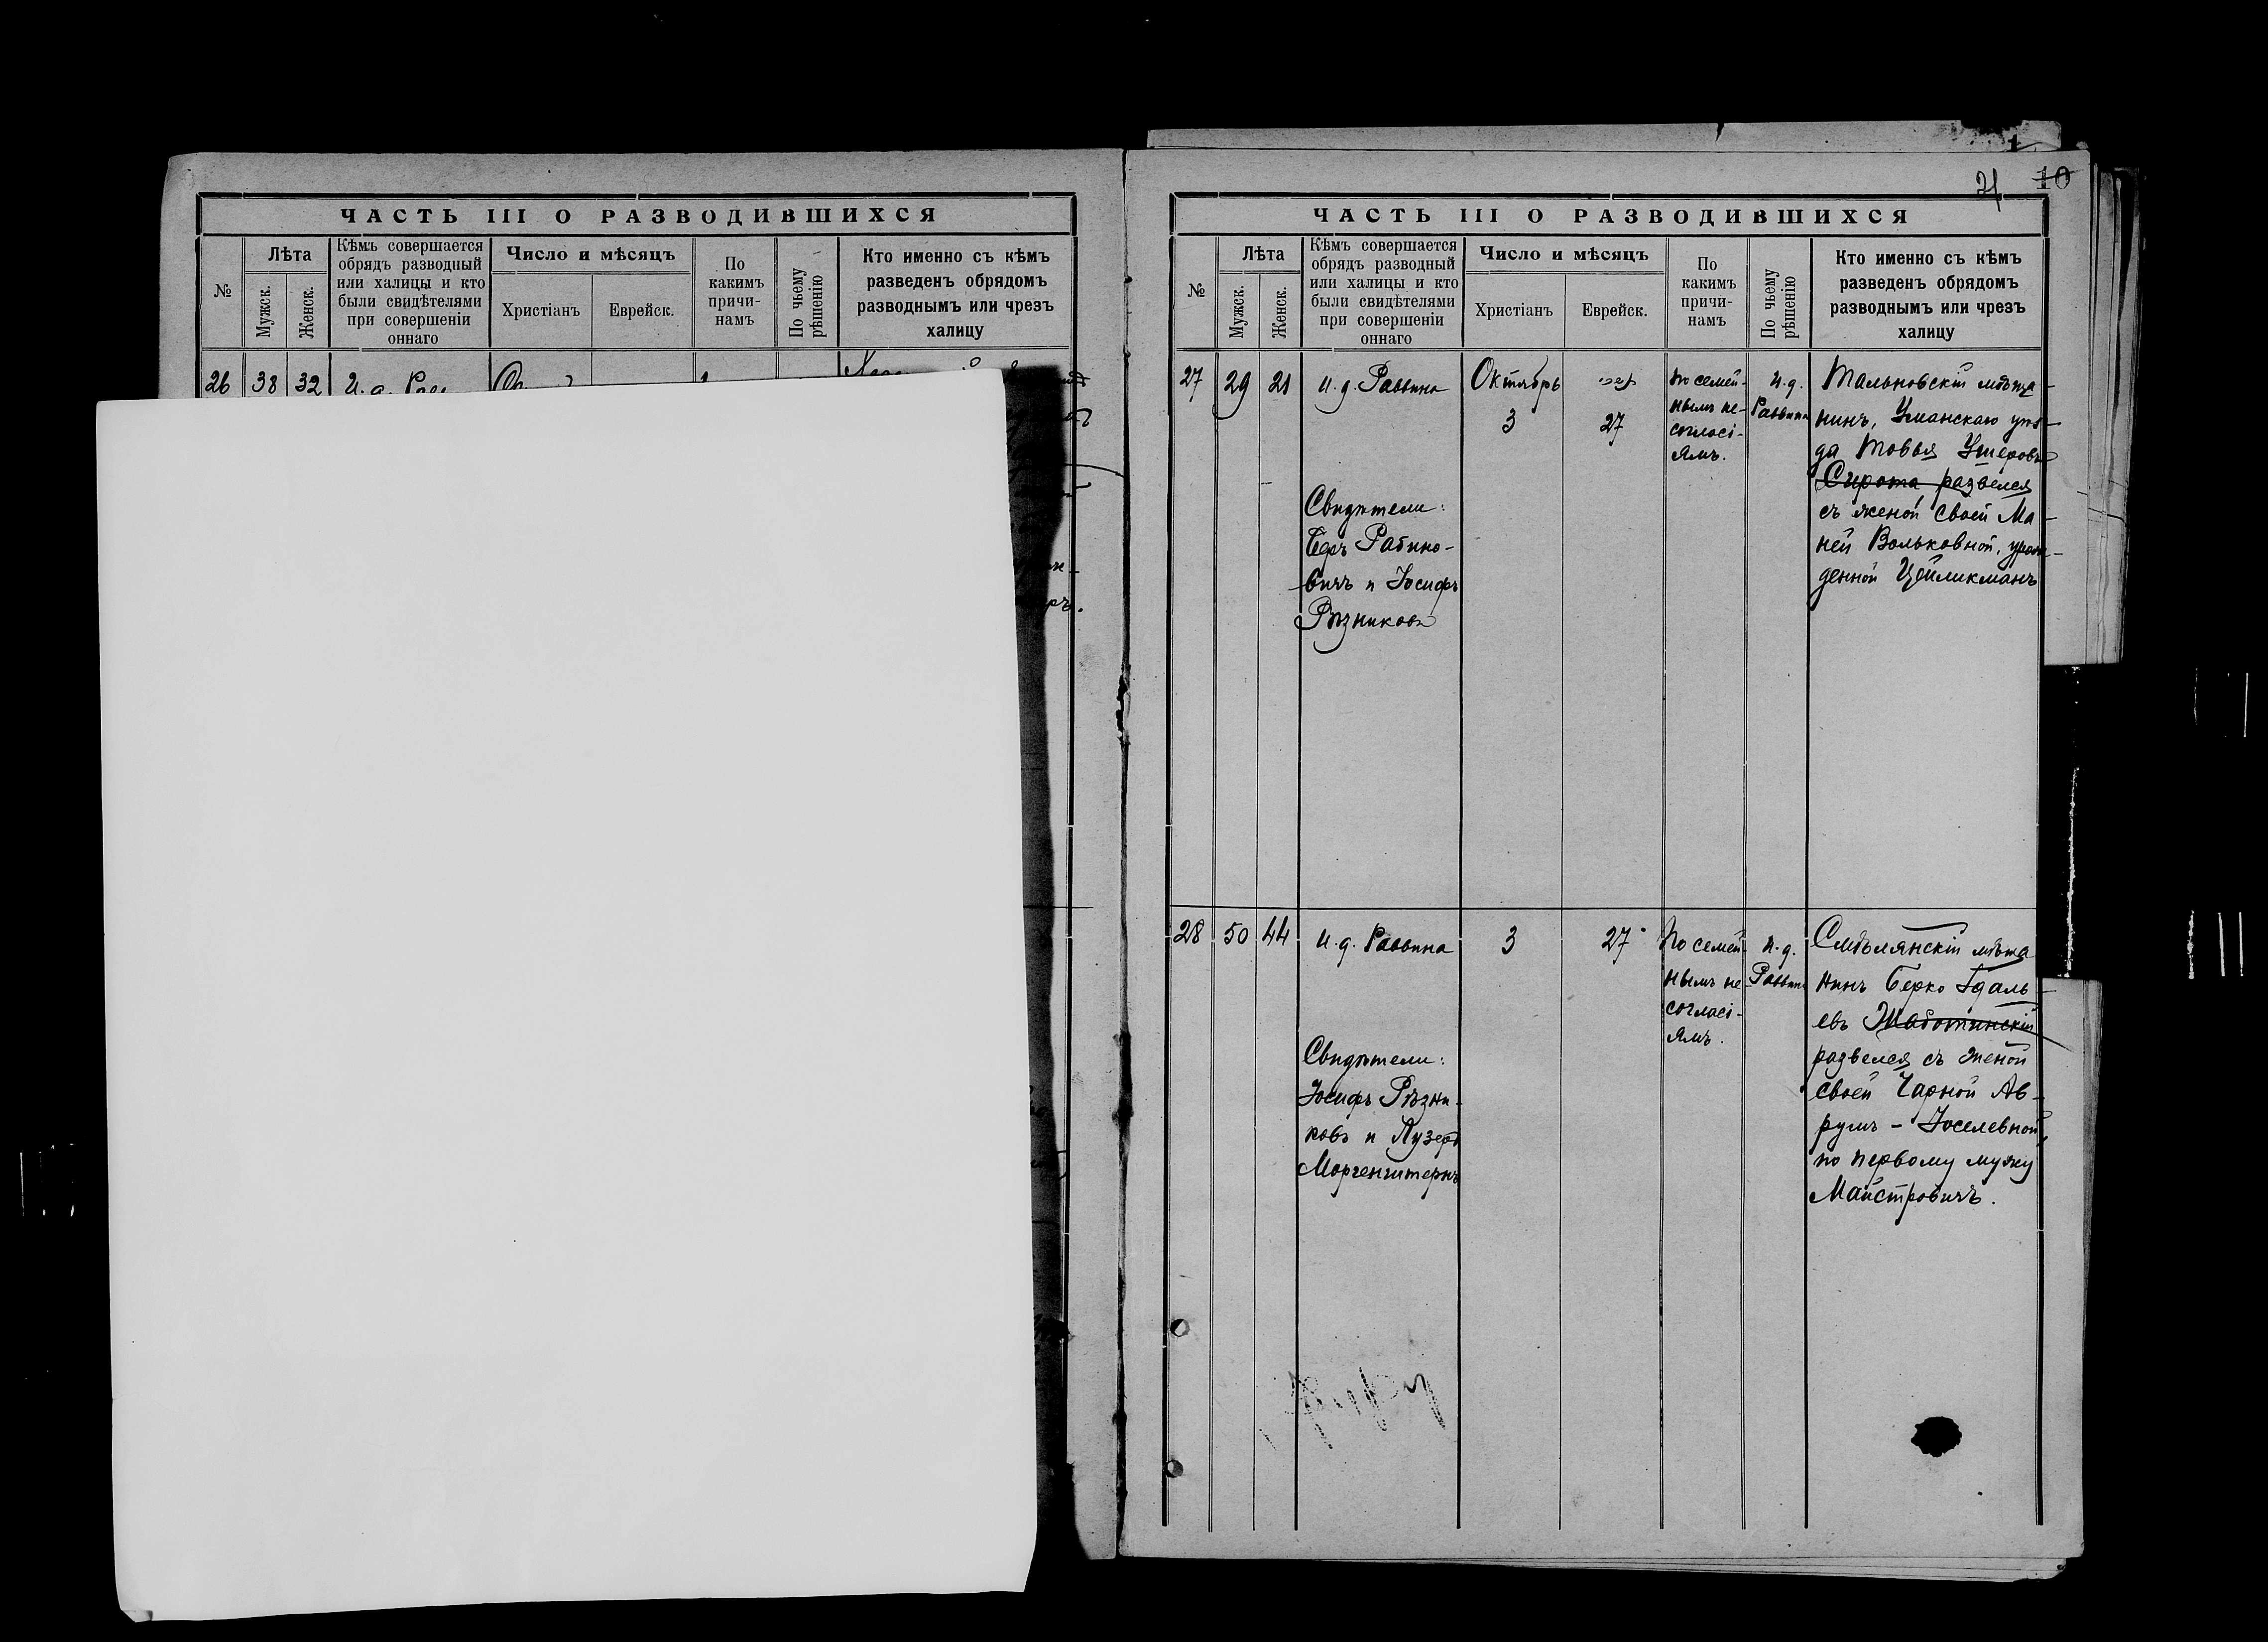 ЧАСТЬ III О РАЗВОДИВШИХСЯ
№
Лѣта
Мужск.
Женск.
Кѣмъ совершается
обрядъ разводный
или халицы и кто
были свидѣтелями
при совершеніи
оннаго
Число и мѣсяцъ
Христіанъ
Еврейск.
По
какимъ
причи-
намъ
По чьему
рѣшенію
Кто именно съ кѣмъ
разведенъ обрядомъ
разводнымъ или чрезъ
халицу
26 38 32 И. д.
10
ЧАСТЬ III О РАЗВОДИВШИХСЯ
№
Лѣта
Мужск.
Женск.
Кѣмъ совершается
обрядъ разводный
или халицы и кто
были свидѣтелями
при совершеніи
оннаго
Число и мѣсяцъ
Христіанъ
Еврейск.
По
какимъ
причи-
намъ
По чьему
рѣшенію
Кто именно съ кѣмъ
разведенъ обрядомъ
разводнымъ или чрезъ
халицу
27 29 21
И. д. Раввина
Свидѣтели:
Беръ Рабино-
вичъ и Іосифъ
Рѣзниковъ
Октябрь
3
27
По семей-
нымъ не-
согласі-
ямъ.
И. д.
Раввина
Тальновскій мѣща-
нинъ, Уманскаго уѣз-
да Товья Ушеровъ
Сирота развелся
съ женой своей Ма-
ней Вольковной, урож-
денной Цейликманъ
28 50 44
И. д. Раввина
Свидѣтели:
Іосифъ Рѣзни-
ковъ и Лузеръ
Моргенштернъ
3
27
По семей-
нымъ не-
согласі-
ямъ.
И. д.
Раввина
Смѣлянскій мѣща
нинъ Берко Гдаль-
евъ Жаботинскій
развелся съ женой
своей Чарной Ав-
румъ-Іоселевной,
по первому мужу
Майстровичъ.